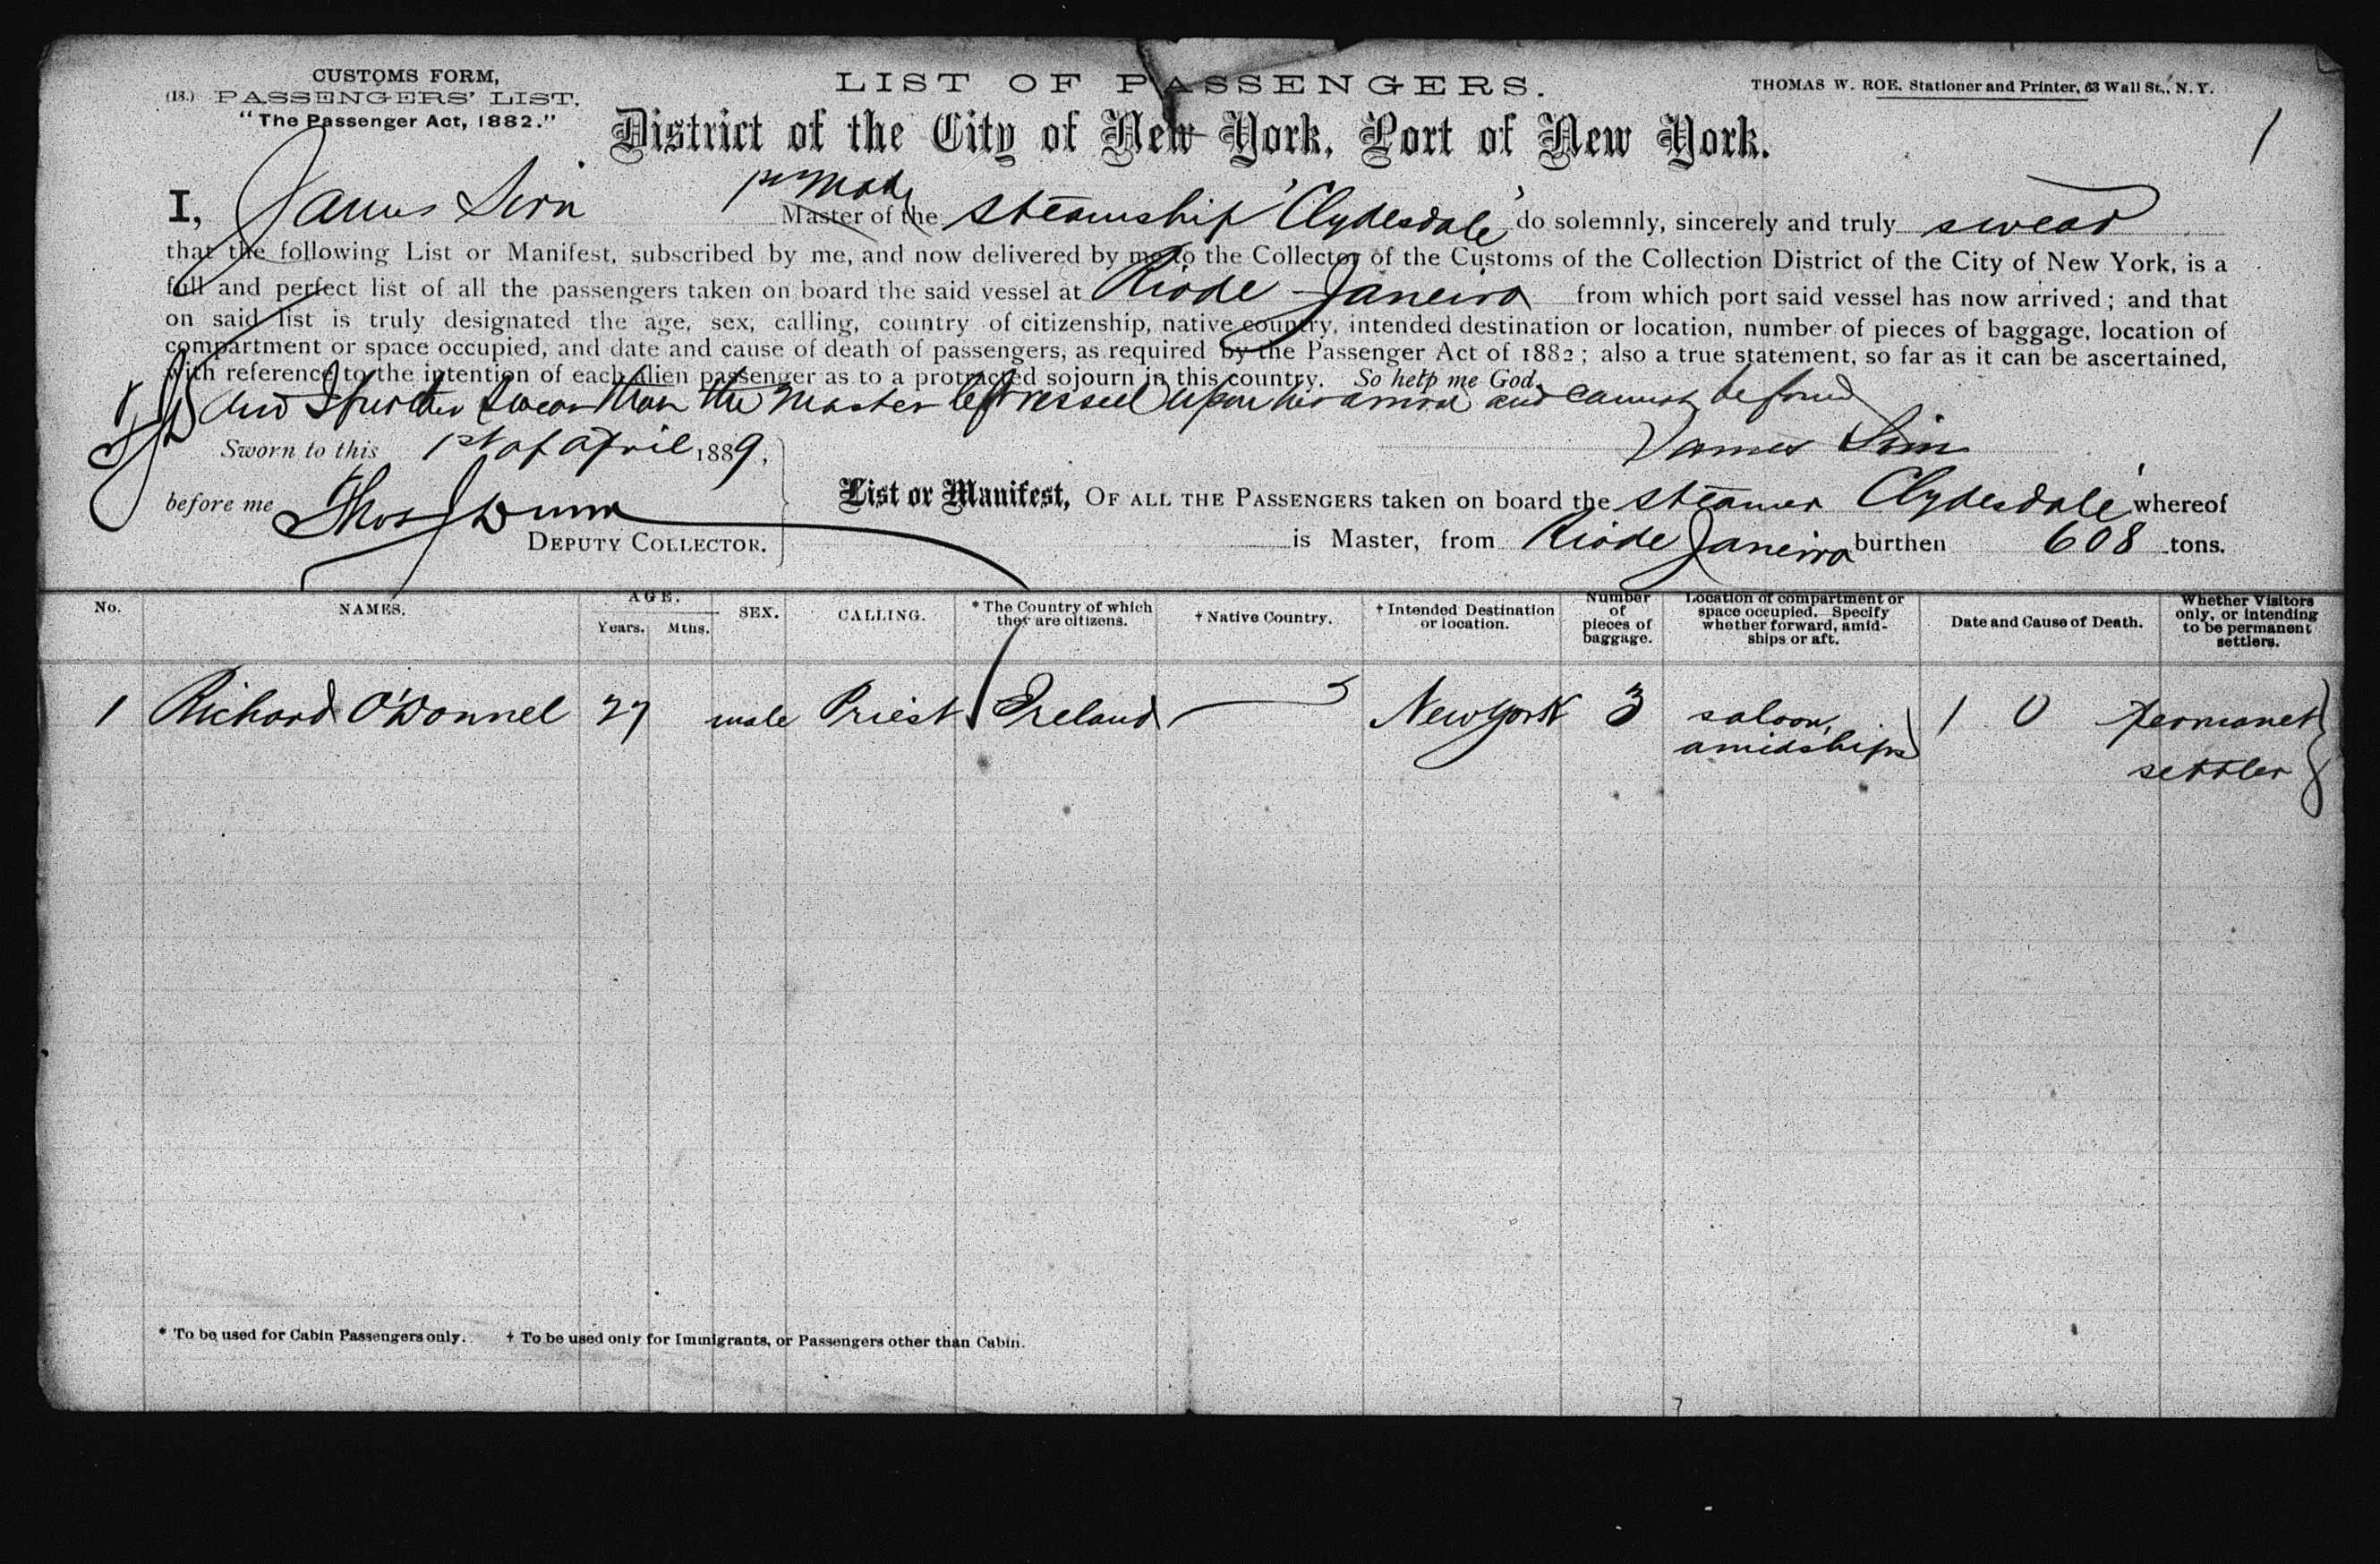 CUSTOMS FORM,
(18.) PASSENGERS' LIST.
"The Passenger Act, 1882."
LIST OF PASSENGERS.
THOMAS W. ROE. Stationer and Printer, 63 Wall St., N. Y.
District of the City of New York, Port of New York.
1
I, James Sim Master of the steamship "Clydesdale" do solemnly, sincerely and truly swear
that the following List or Manifest, subscribed by me, and now delivered by me to the Collector of the Customs of the Collection District of the City of New York, is a
full and perfect list of all the passengers taken on board the said vessel at Rio de Janeiro from which port said vessel has now arrived; and that
on said list is truly designated the age, sex, calling, country of citizenship, native country, intended destination or location, number of pieces of baggage, location of
compartment or space occupied, and date and cause of death of passengers, as required by the Passenger Act of 1882; also a true statement, so far as it can be ascertained,
with reference to the intention of each alien passenger as to a protracted sojourn in this country. So help me God.
and I further swear that the Master left vessel upon her arrival and cannot be found
Sworn to this 1st of April 1889,
James Sim
before me Thos J Dunn
DEPUTY COLLECTOR.
List or Manifest, OF ALL THE PASSENGERS taken on board the steamer Clydesdale whereof
is Master, from Rio de Janeiro burthen 608 tons.
No. NAMES. AGE. Years. Mths. SEX. CALLING. * The Country of which they are citizens. † Native Country. † Intended Destination or location. Number of pieces of baggage. Location of compartment or space occupied. Specify whether forward, amidships or aft. Date and Cause of Death. Whether Visitors only, or intending to be permanent settlers.
1 Richard O'Donnel 27 male Priest Ireland New York 3 saloon, amidships 1 0 permanet settler
* To be used for Cabin Passengers only. † To be used only for Immigrants, or Passengers other than Cabin.